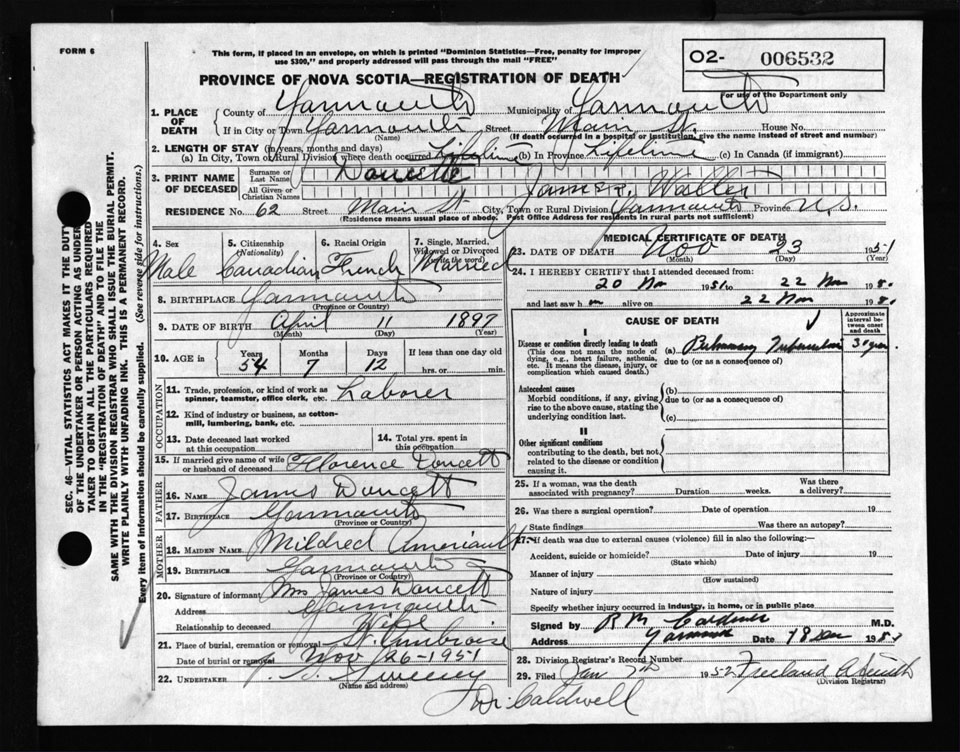 FORM 6
This form, if placed in an envelope, on which is printed "Dominion Statistics—Free, penalty for improper
use $300," and properly addressed will pass through the mail "FREE"
O2- 006532
For use of the Department only
PROVINCE OF NOVA SCOTIA—REGISTRATION OF DEATH
1. PLACE OF DEATH County of Yarmouth Municipality of Yarmouth
If in City or Town Yarmouth (Name) Street Main St. House No.
(If death occurred in a hospital or institution, give the name instead of street and number)
2. LENGTH OF STAY (in years, months and days)
(a) In City, Town or Rural Division where death occurred Lifetime (b) In Province Lifetime (c) In Canada (if immigrant)
3. PRINT NAME OF DECEASED Surname or Last Name Doucette
All Given or Christian Names James Walter
RESIDENCE No. 62 Street Main St City, Town or Rural Division Yarmouth Province N.S.
(Residence means usual place of abode. Post Office Address for residents in rural parts not sufficient)
4. Sex Male
5. Citizenship (Nationality) Canadian
6. Racial Origin French
7. Single, Married, Widowed or Divorced (write the word) Married
8. BIRTHPLACE Yarmouth
(Province or Country)
9. DATE OF BIRTH April 11 1897
(Month) (Day) (Year)
10. AGE in Years Months Days If less than one day old
54 7 12 hrs. or min.
OCCUPATION
11. Trade, profession, or kind of work as
spinner, teamster, office clerk, etc. Laborer
12. Kind of industry or business, as cotton-
mill, lumbering, bank, etc.
13. Date deceased last worked
at this occupation
14. Total yrs. spent in
this occupation
15. If married give name of wife
or husband of deceased Florence Doucett
FATHER
16. NAME James Doucett
17. BIRTHPLACE Yarmouth
(Province or Country)
MOTHER
18. MAIDEN NAME Mildred Ameriault
19. BIRTHPLACE Yarmouth
(Province or Country)
20. Signature of informant Mrs James Doucett
Address Yarmouth
Relationship to deceased Wife
21. Place of burial, cremation or removal St. Ambroise
Date of burial or removal Nov 26-1951
22. UNDERTAKER Sweeney
(Name and address)
MEDICAL CERTIFICATE OF DEATH
23. DATE OF DEATH Nov 23 1951
(Month) (Day) (Year)
24. I HEREBY CERTIFY that I attended deceased from:
20 Nov 1951 to 22 Nov 19
and last saw h m alive on 22 Nov 19
CAUSE OF DEATH
Approximate interval between onset and death
I
Disease or condition directly leading to death
(This does not mean the mode of
dying, e.g., heart failure, asthenia,
etc. It means the disease, injury, or
complication which caused death.)
(a) Pulmonary Tuberculosis 3 years
due to (or as a consequence of)
Antecedent causes
Morbid conditions, if any, giving
rise to the above cause, stating the
underlying condition last.
(b)
due to (or as a consequence of)
(c)
II
Other significant conditions
contributing to the death, but not
related to the disease or condition
causing it.
25. If a woman, was the death
associated with pregnancy? Duration weeks. Was there a delivery?
26. Was there a surgical operation? Date of operation 19
State findings Was there an autopsy?
27. If death was due to external causes (violence) fill in also the following:—
Accident, suicide or homicide? Date of injury 19
(State which)
Manner of injury
(How sustained)
Nature of injury
Specify whether injury occurred in industry, in home, or in public place
Signed by R M Caldwell M.D.
Address Yarmouth Date 18 Dec 19
28. Division Registrar's Record Number
29. Filed Jan 1952 Freeland A Smith
(Division Registrar)
Dr. Caldwell
SEC. 46—VITAL STATISTICS ACT MAKES IT THE DUTY
OF THE UNDERTAKER OR PERSON ACTING AS UNDER-
TAKER TO OBTAIN ALL THE PARTICULARS REQUIRED
IN THE "REGISTRATION OF DEATH" AND TO FILE THE
SAME WITH THE DIVISION REGISTRAR WHO SHALL ISSUE THE BURIAL PERMIT.
WRITE PLAINLY WITH UNFADING INK. THIS IS A PERMANENT RECORD.
Every item of information should be carefully supplied. (See reverse side for instructions.)